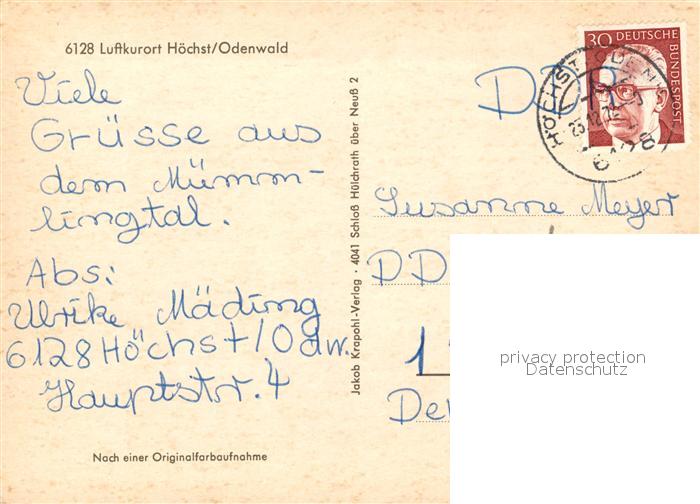 6128 Luftkurort Höchst/Odenwald
Viele
Grüsse aus
dem Mümm-
lingtal.
Abs:
Ulrike Mäding
6128 Höchst/Odw.
Hauptstr. 4
Nach einer Originalfarbaufnahme
Jakob Krapohl-Verlag · 4041 Schloß Hülchrath über Neuß 2
30 DEUTSCHE
BUNDESPOST
HÖCHST, ODENW
6128
DDR
Susanne Meyer
DD
1
De
privacy protection
Datenschutz